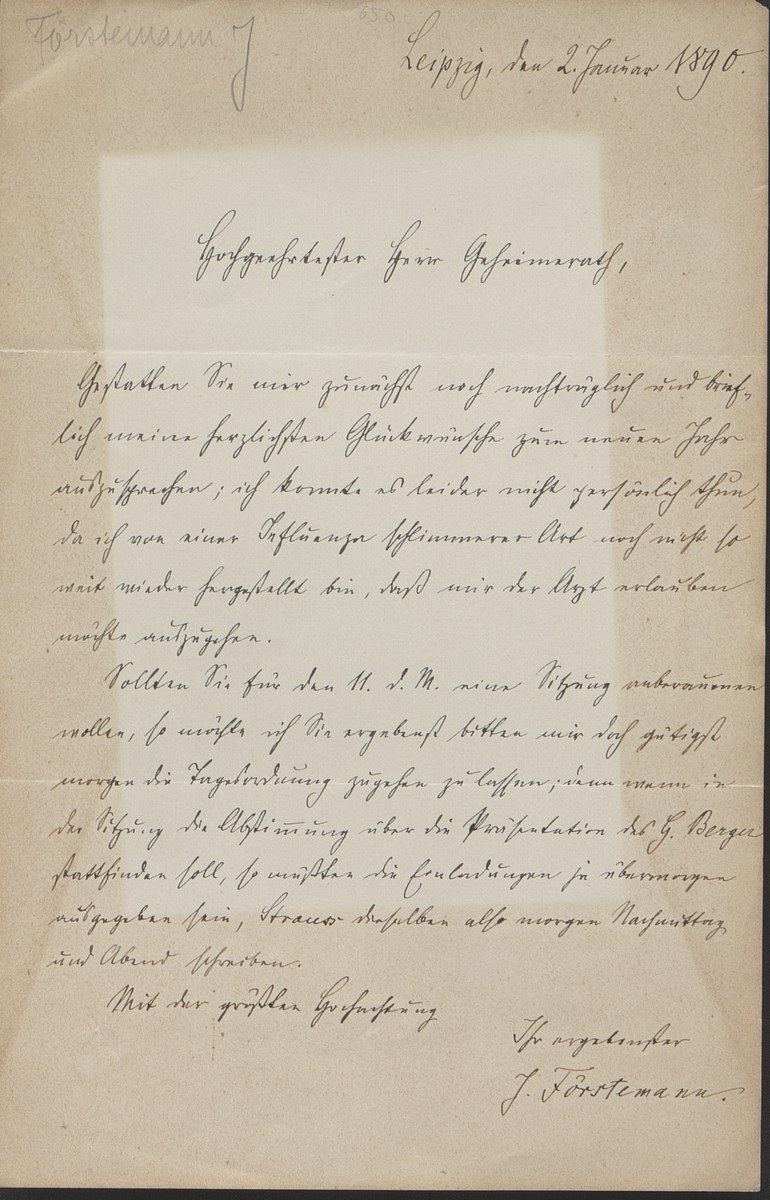 Förstemann J
650
Leipzig, den 2. Januar 1890.
Hochgeehrtester Herr Geheimerath,
Gestatten Sie mir zunächst noch nachträglich und brief-
lich meine herzlichsten Glückwünsche zum neuen Jahr
auszusprechen; ich konnte es leider nicht persönlich thun,
da ich von einer Influenza schlimmerer Art noch nicht so
weit wieder hergestellt bin, daß mir der Arzt erlauben
möchte auszugehen.
Sollten Sie für den 11. d. M. eine Sitzung anberaumen
wollen, so möchte ich Sie ergebenst bitten mir doch gütigst
morgen die Tagesordnung zugehen zu lassen; denn wenn in
der Sitzung die Abstimmung über die Präsentation des H. Berger
stattfinden soll, so müßten die Einladungen ja übermorgen
ausgegeben sein, Strauss dieselben also morgen Nachmittag
und Abend schreiben.
Mit der größten Hochachtung
Ihr ergebenster
J. Förstemann.